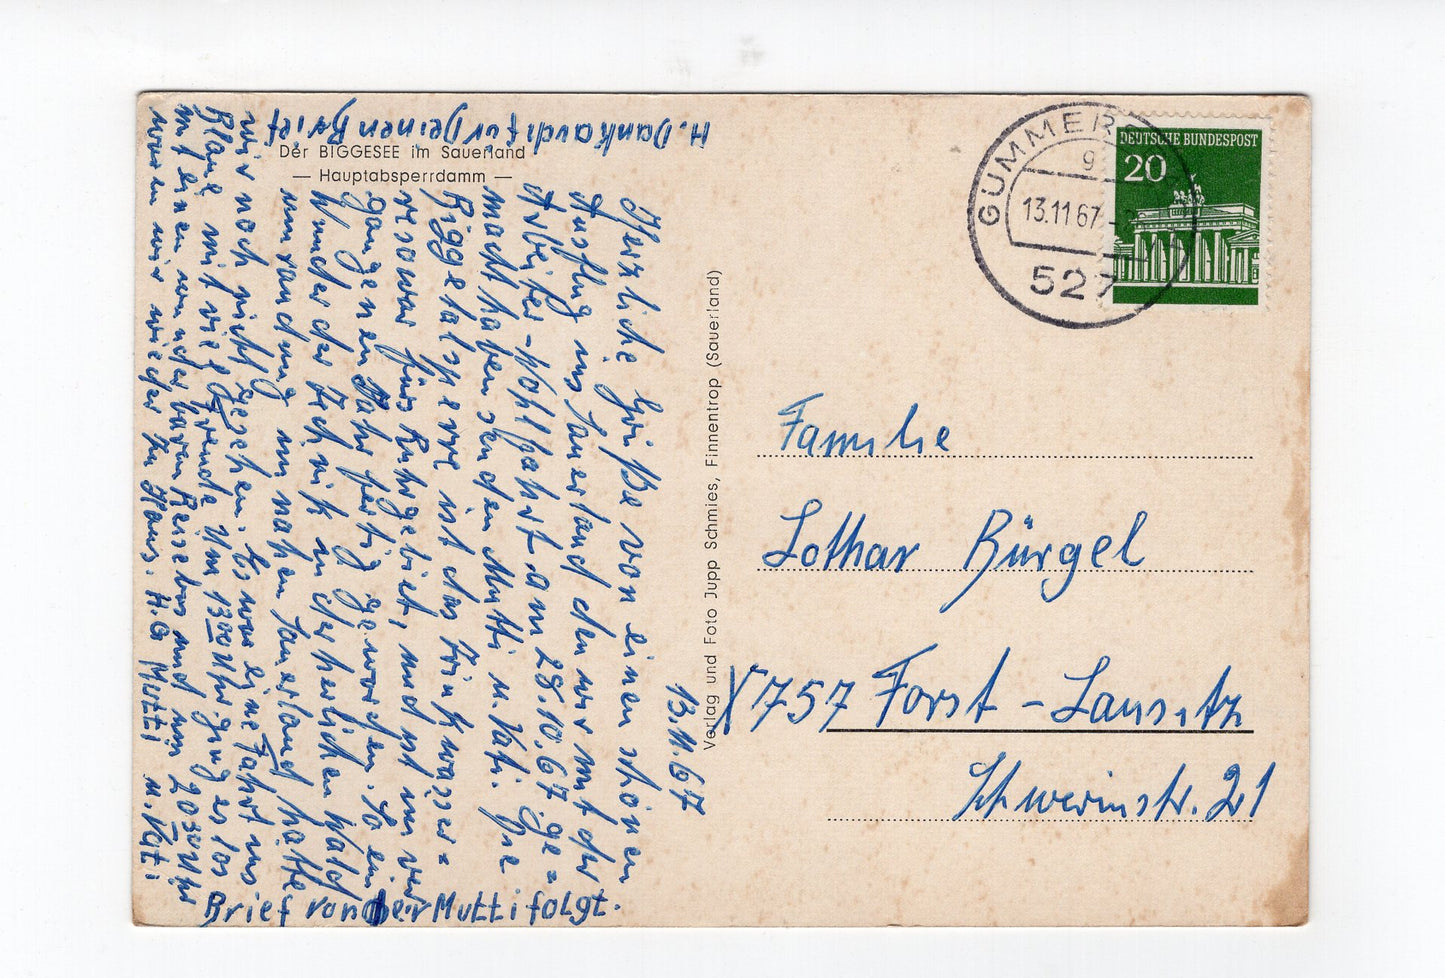 Der BIGGESEE im Sauerland
— Hauptabsperrdamm —
H. Dank auch für Deinen Brief
13.11.67
Herzliche Grüße von einen schönen
Ausflug ins Sauerland den wir mit der
Arbeiter-Wohlfahrt am 28.10.67 ge=
macht haben senden Mutti u. Vati. Die
Biggetalsperre ist das Trinkwasser=
resowar fürs Ruhrgebiet, und ist im ver
gangenen Jahr fertig geworden. So ein
Wunder der Technik in der herlichen Wald
umrandung im nahen Sauerland hatte
wir noch nicht gesehen. Es war eine Fahrt ins
Blaue mit viel Freude um 13 00 Uhr ging es los
mit einen wunderbaren Reisebus und um 20 30 Uhr
waren wir wieder zu Haus. H.G Mutti u. Vati
Brief von der Mutti folgt.
Verlag und Foto Jupp Schmies, Finnentrop (Sauerland)
GUMMERS
13.11.67
527
DEUTSCHE BUNDESPOST
20
Familie
Lothar Bürgel
X 757 Forst - Lausitz
Schwerinstr. 21